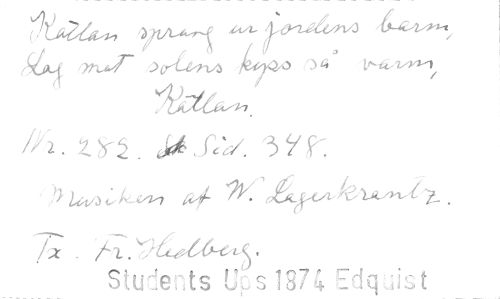 Källan sprang ur jordens barm,
Låg mot solens kyss så varm,
Källan.
Nr. 282. Sid. 348.
Musiken af W. Lagerkrantz.
Tx. Fr. Hedberg.
Students Ups 1874 Edquist